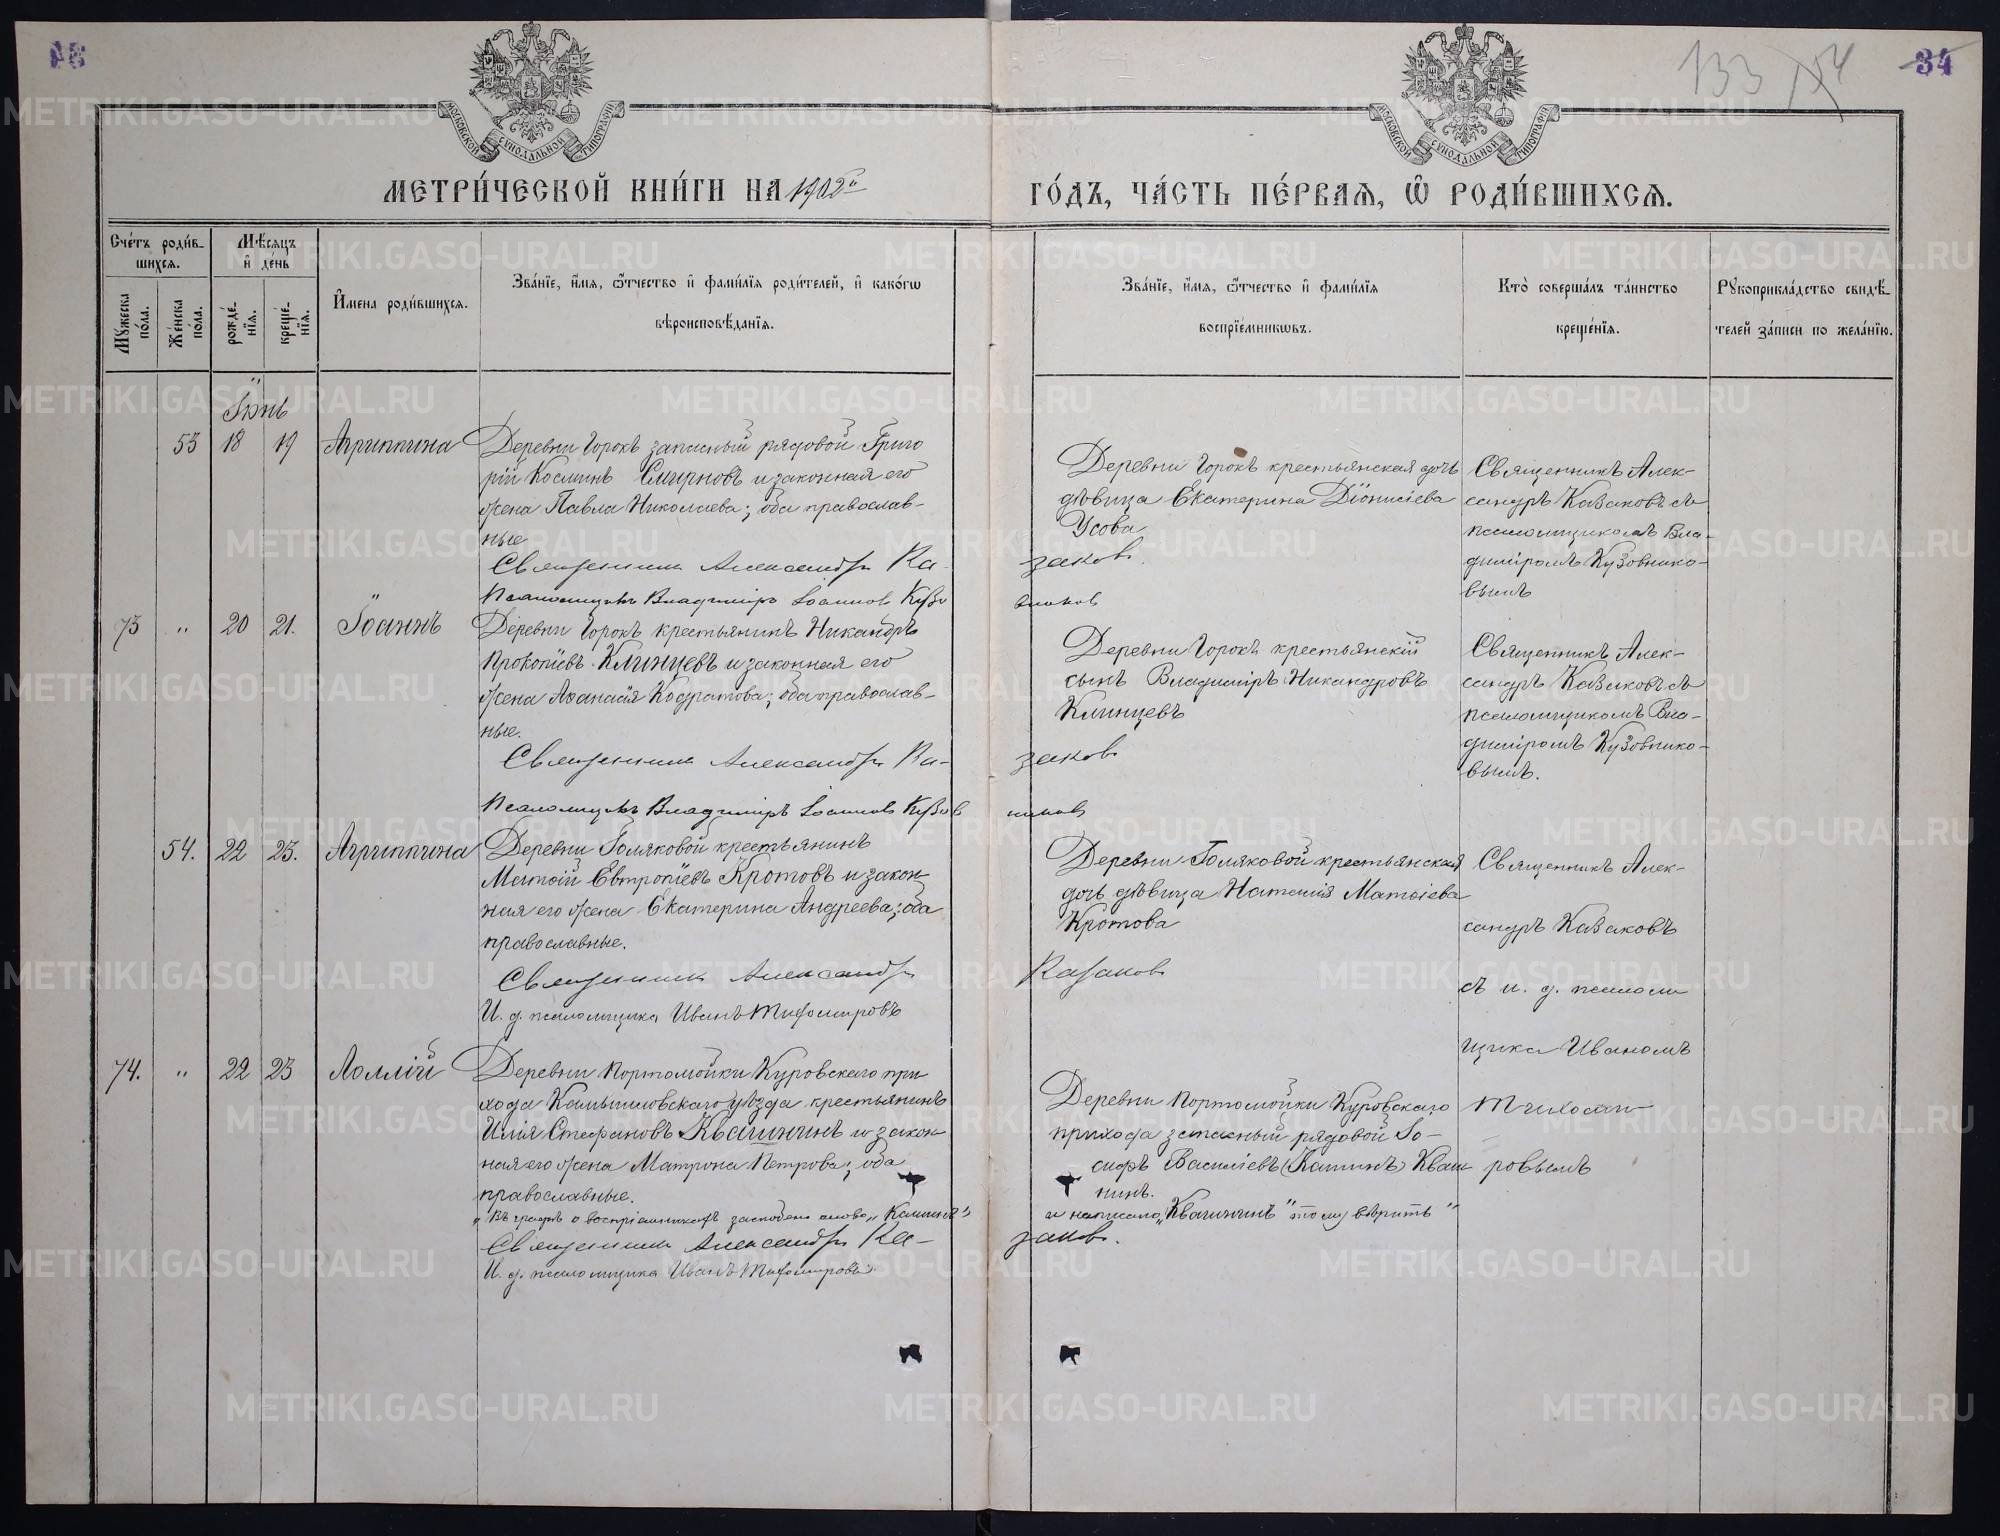 133 154 34
МОСКОВСКОЙ СѴНОДАЛЬНОЙ ТИПОГРАФІИ
МОСКОВСКОЙ СѴНОДАЛЬНОЙ ТИПОГРАФІИ
МЕТРИ́ЧЕСКОЙ КНИ́ГИ НА 1902й
ГО́ДЪ, ЧА́СТЬ ПЕ́РВАѦ, Ѡ҆ РОДИ́ВШИХСѦ.
Сче́тъ роди́в-
шихсѧ.
Мꙋ́жеска по́ла.
Же́нска по́ла.
Мѣ́сѧцъ
и҆ де́нь
рожде́-
нїѧ.
креще́-
нїѧ.
И҆мена роди́вшихсѧ.
Зва́нїе, и҆́мѧ, ѻ҆́тчество и҆ фами́лїѧ роди́телей, и҆ како́гѡ
вѣроисповѣ́данїѧ.
Зва́нїе, и҆́мѧ, ѻ҆́тчество и҆ фами́лїѧ
воспрїе́мникѡвъ.
Кто̀ соверша́лъ та́инство
креще́нїѧ.
Рꙋкоприкла́дство свидѣ́-
телей за́писи по жела́нїю.
Іюнь
53 18 19 Агриппина
Деревни Горокъ запасный рядовой Григо
рій Косминъ Смирновъ и законная его
жена Павла Николаева; оба православ-
ные
Священникъ Александръ Ка-
заков.
Псаломщикъ Владиміръ Іоаннов Кузо
вников
Деревни Горокъ крестьянская дочь
дѣвица Екатерина Діонисіева
Усова
Священникъ Алек-
сандръ Казаковъ съ
псаломщикомъ Вла-
диміромъ Кузовнико-
вымъ
73 " 20 21. Іоаннъ
Деревни Горокъ крестьянинъ Никандръ
Прокопіевъ Клинцевъ и законная его
жена Аѳанасія Кодратова; оба православ-
ные.
Священникъ Александръ Ка-
заков
Псаломщикъ Владиміръ Іоаннов Кузов
ников
Деревни Горокъ крестьянскій
сынъ Владиміръ Никандровъ
Клинцевъ
Священникъ Алек-
сандръ Казаковъ съ
псаломщикомъ Вла-
диміромъ Кузовнико-
вымъ.
54. 22 23. Агриппина
Деревни Голяковой крестьянинъ
Матѳій Евтропіевъ Кротовъ и закон-
ная его жена Екатерина Андреева; оба
православные.
Священникъ Александръ
Казаков
И. д. псаломщика Иванъ Тихомировъ
Деревни Голяковой крестьянская
дочь дѣвица Наталія Матѳіева
Кротова
Священникъ Алек-
сандръ Казаковъ
съ и. д. псалом
щика Иваномъ
Тихоми-
ровымъ
74. " 22 23 Лоллій
Деревни Портомойки Куровскаго при
хода Камышловскаго уѣзда крестьянинъ
Илія Стефановъ Квашнинъ и закон
ная его жена Матрона Петрова; оба
православные.
Деревни Портомойки Куровскаго
прихода запасный рядовой Іо-
сифъ Василіевъ (Кашинъ) Кваш
нинъ.
„Въ графѣ о воспріемникахъ заскоблено слово „Кашинъ"
и написано „Квашнинъ" тому вѣрить"
Священникъ Александръ Ка-
заков.
И. д. псаломщика Иванъ Тихомировъ.
METRIKI.GASO-URAL.RU